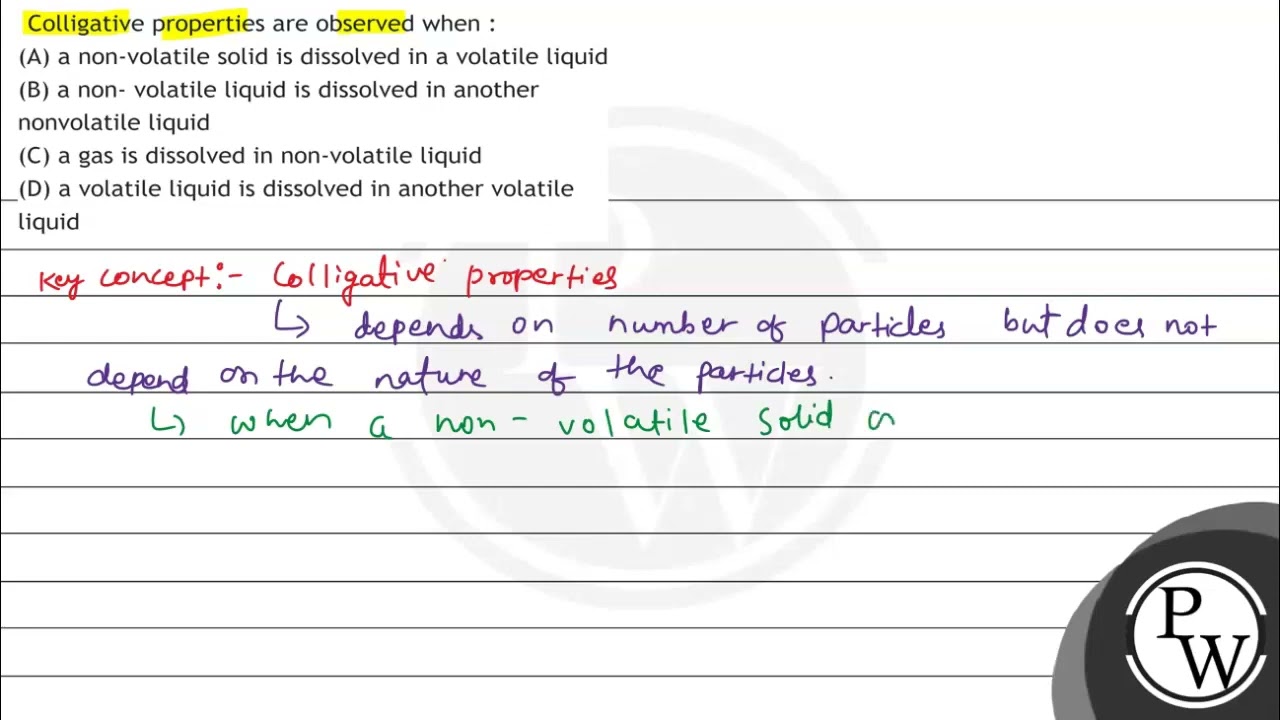 Colligative properties are observed when :
(A) a non-volatile solid is dissolved in a volatile liquid
(B) a non- volatile liquid is dissolved in another
nonvolatile liquid
(C) a gas is dissolved in non-volatile liquid
(D) a volatile liquid is dissolved in another volatile
liquid
Key concept:- Colligative properties
↳ depends on number of particles but does not
depend on the nature of the particles.
↳ when a non-volatile solid
P
W